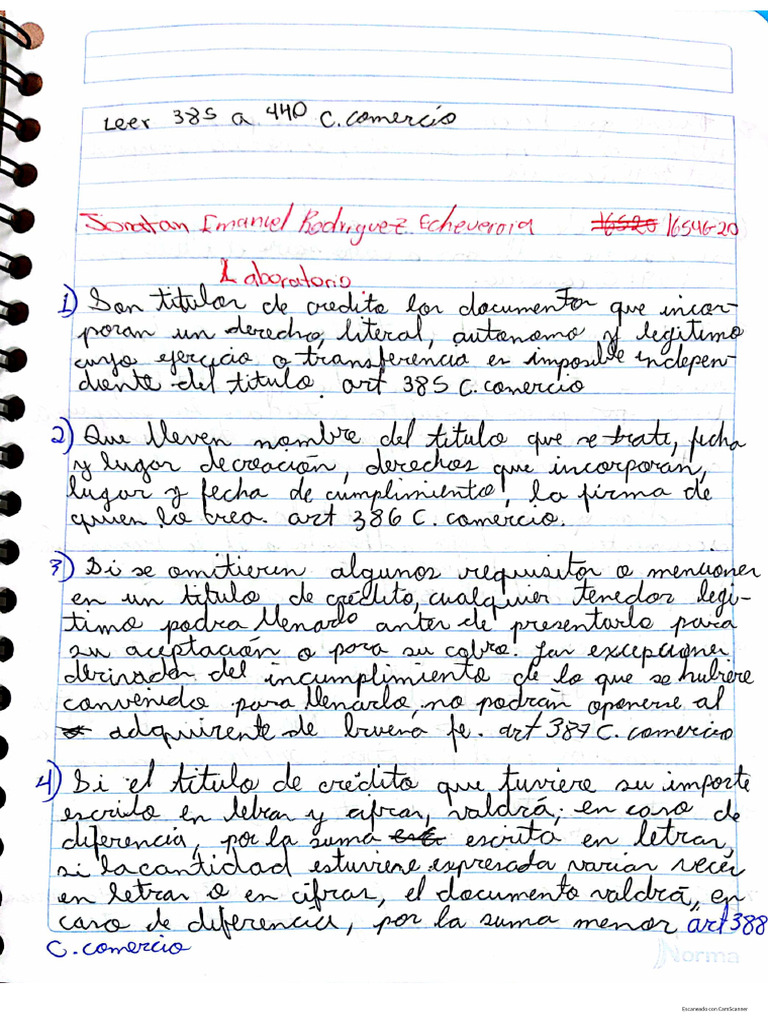 Leer 385 a 440 C. comercio
Jonatan Emanuel Rodriguez Echeverria 16520 16546-20
Laboratorio
1) Son titulos de credito los documentos que incor-
poran un derecho, literal, autonomo y legitimo
cuyo ejercicio o transferencia es imposible indepen-
diente del titulo. art 385 C. comercio
2) Que lleven nombre del titulo que se trate, fecha
y lugar de creación, derechos que incorporan,
lugar y fecha de cumplimiento, la firma de
quien lo crea. art 386 C. comercio.
3) Si se omitieren algunos requisitos o menciones
en un titulo de crédito, cualquier tenedor legi-
timo podra llenarlo antes de presentarlo para
su aceptación o para su cobro. Las excepciones
derivadas del incumplimiento de lo que se hubiere
convenido para llenarlo, no podrán oponerse al
adquirente de buena fe. art 387 C. comercio
4) Si el titulo de crédito que tuviere su importe
escrido en letras y cifras, valdrá; en caso de
diferencia, por la suma escrita en letras,
si la cantidad estuviere expresada varias veces
en letras o en cifras, el documento valdrá, en
caso de diferencia, por la suma menor art 388
C. comercio
Norma
Escaneado con CamScanner